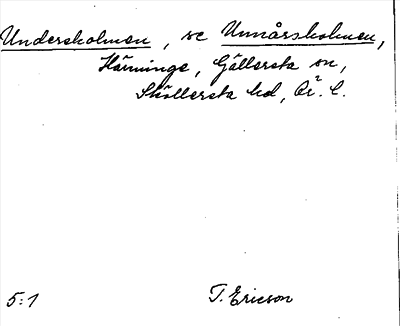 Undersholmen, se Unnårsholmen,
Hänninge, Gällersta sn,
Sköllersta hd, Ör. l.
5:1 T. Ericson